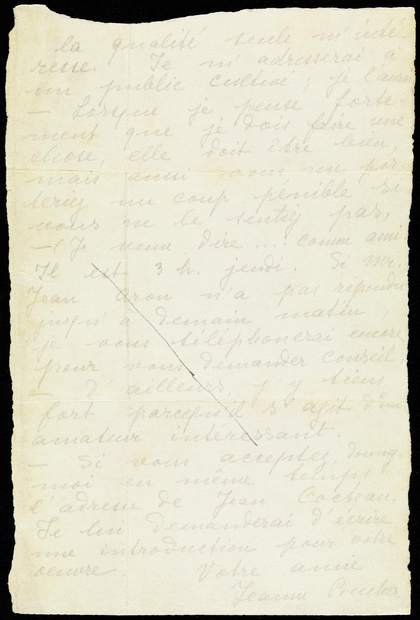 la qualité seule m'inté
resse. Je m'adresserai à
un public cultivé, je l'aurai
– Lorsque je pense forte
ment que je dois faire une
chose, elle doit être bien,
mais aussi vous me por
teriez un coup pénible si
vous ne le sentez pas,
– (Je veux dire ... comme ami.
Il est 3 h. jeudi. Si Mr.
Jean Aron n'a pas répondu
jusqu'à demain matin,
je vous téléphonerai encore
pour vous demander conseil
– D'ailleurs j'y tiens
fort parcequ'il s'agit d'un
amateur intéressant.
– Si vous acceptez, donnez
moi en même temps
l'adresse de Jean Cocteau.
Je lui demanderai d'écrire
une introduction pour votre
oeuvre. Votre amie
Jeanne